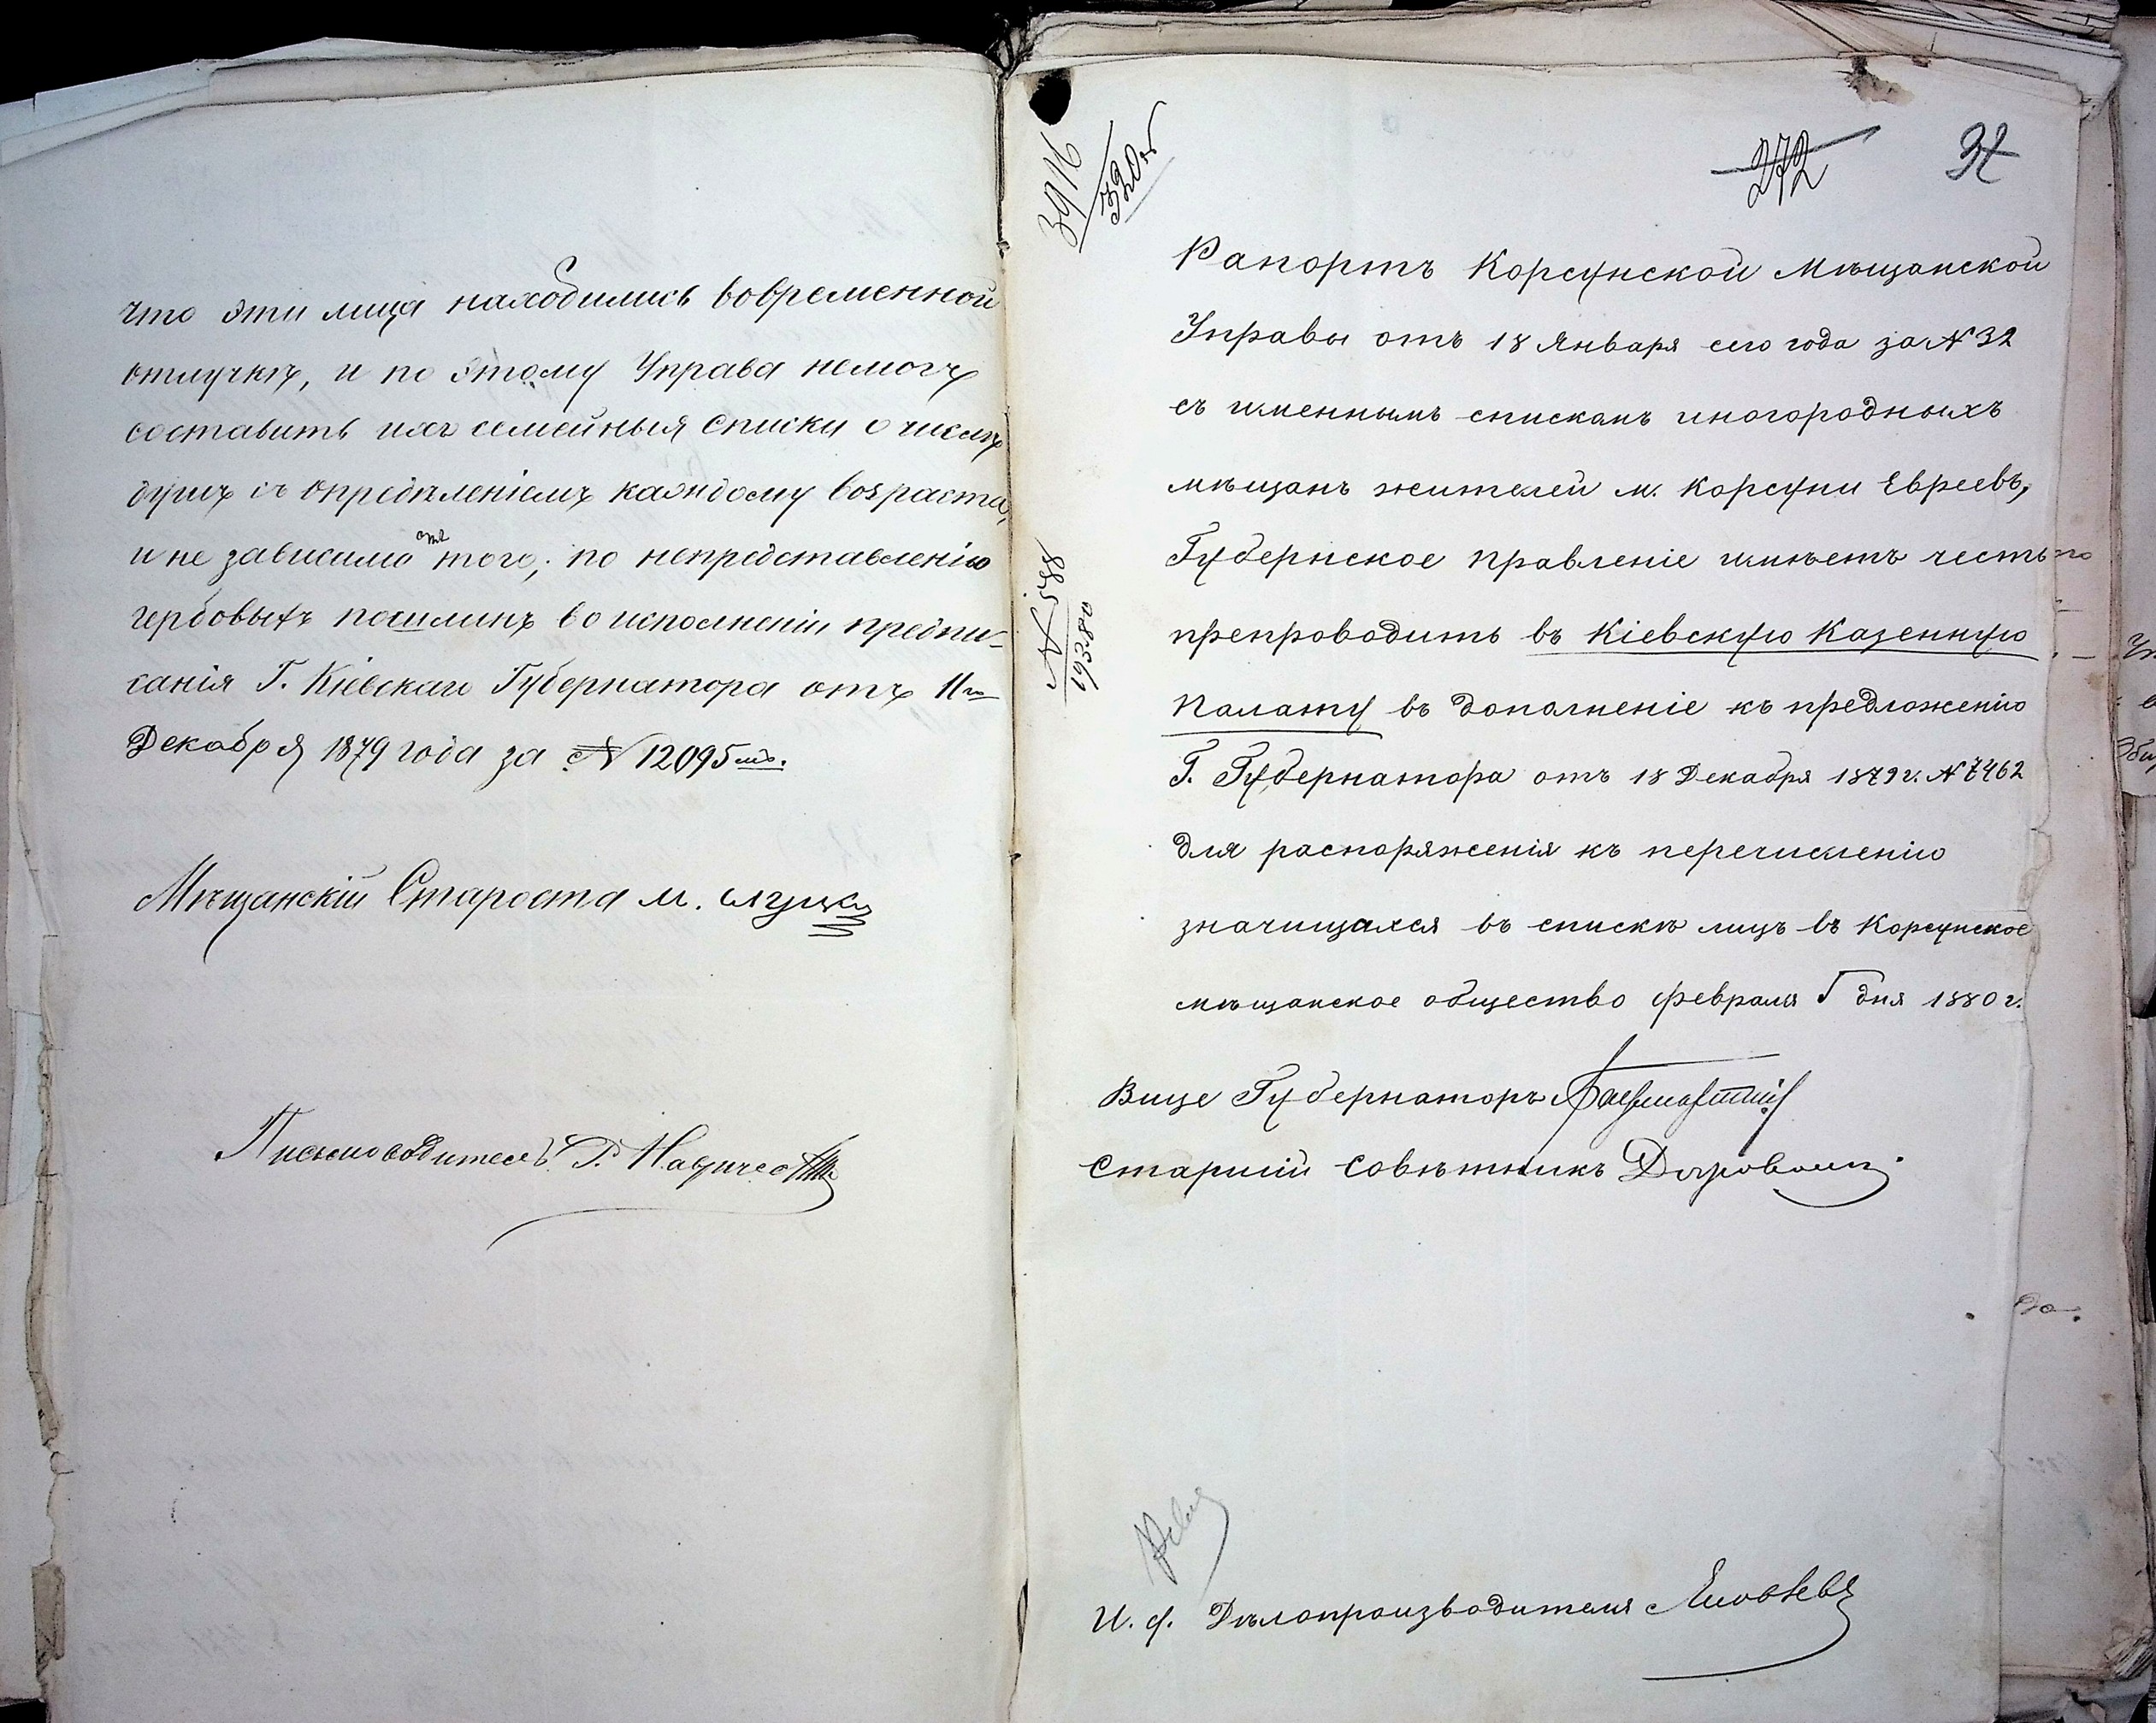 что эти лица находились вовременной
отлучкѣ, и по этому Управа немогъ
составить ихъ семейныя списки о числѣ
душъ съ опредѣленіемъ каждому возраста,
и не зависимо отъ того, по непредставленію
гербовыхъ пошлинъ во исполненіи предпи-
санія Г. Кіевскаго Губернатора отъ 11го
Декабря 1879 года за № 12095мъ.
Мѣщанскій Староста М. Слуцкій
Письмоводитель Г.
3916
320
272
32
Рапортъ Корсунской Мѣщанской
Управы отъ 18 Января сего года за № 32
съ именнымъ спискамъ иногородныхъ
мѣщанъ жителей м. Корсуни Евреевъ,
Губернское Правленіе имѣетъ честь
препроводить въ Кіевскую Казенную
Палату въ дополненіе къ предложенію
Г. Губернатора отъ 18 Декабря 1879 г. № 7462
для распоряженія къ перечисленію
значищахся въ спискѣ лицъ въ Корсунское
мѣщанское общество февраля 5 дня 1880 г.
№ 588
Вице Губернаторъ
Старшій Совѣтникъ
И. ф. Дѣлопроизводителя Яковлевъ